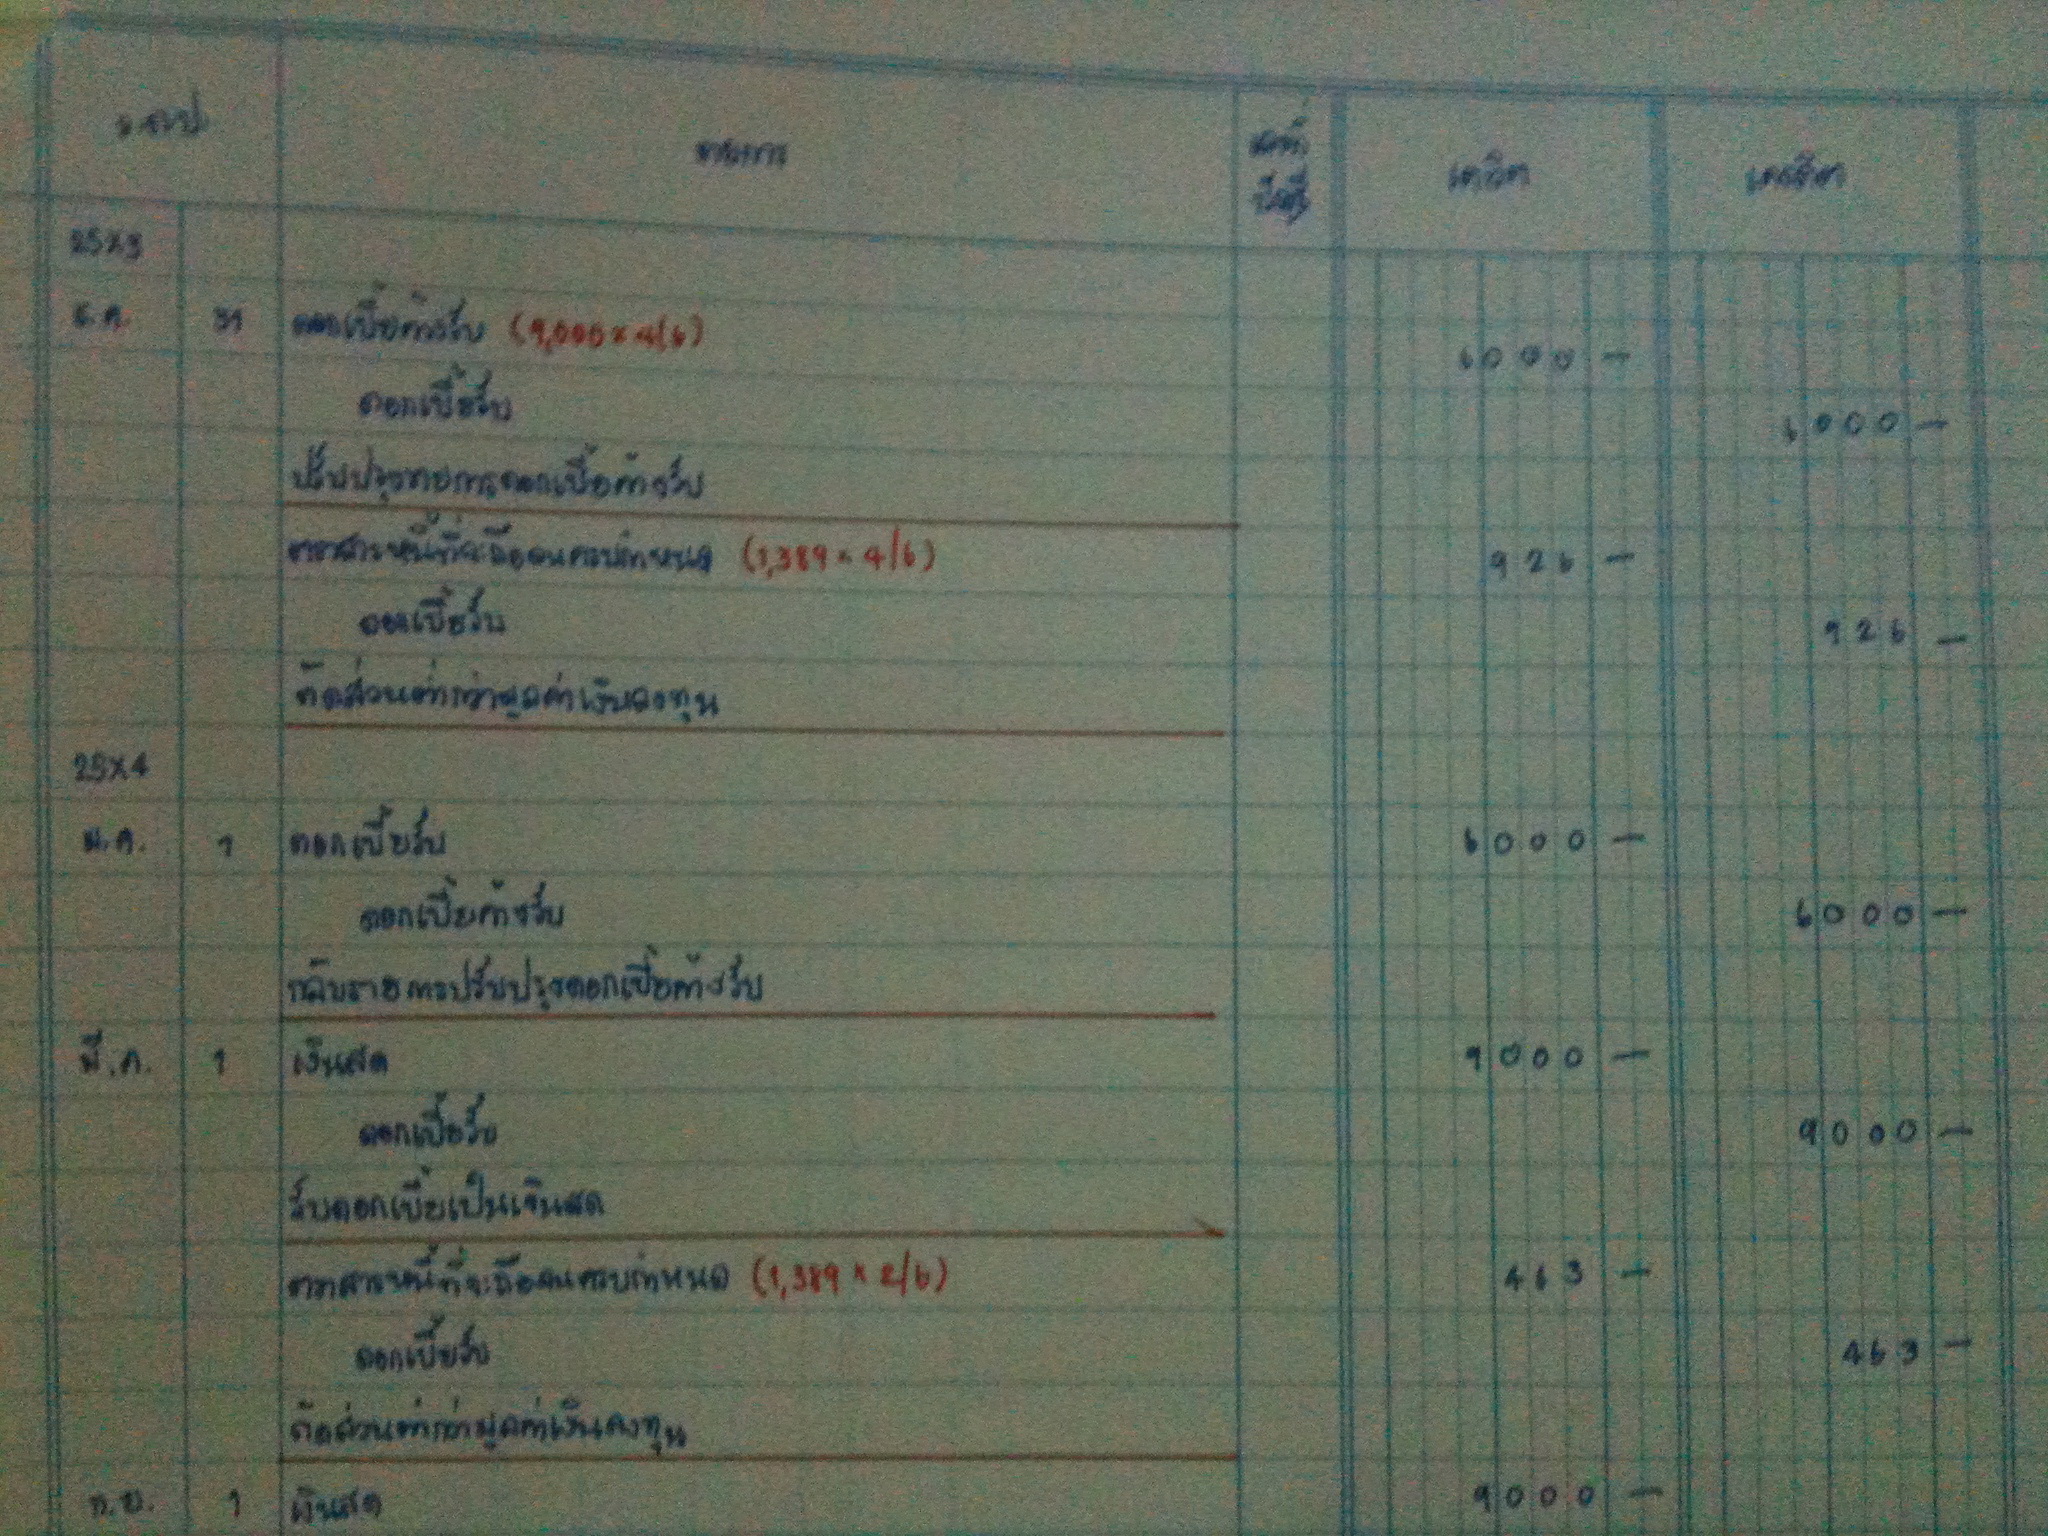 ว.ด.ป. รายการ เลขที่บัญชี เดบิต เครดิต
25X3
ธ.ค. 31 ดอกเบี้ยค้างรับ (9,000 x 4/6) 6000 —
ดอกเบี้ยรับ 6000 —
ปรับปรุงรายการดอกเบี้ยค้างรับ
ตราสารหนี้ที่จะถือจนครบกำหนด (1,389 x 4/6) 926 —
ดอกเบี้ยรับ 926 —
ตัดส่วนต่ำกว่ามูลค่าเงินลงทุน
25X4
ม.ค. 1 ดอกเบี้ยรับ 6000 —
ดอกเบี้ยค้างรับ 6000 —
กลับรายการปรับปรุงดอกเบี้ยค้างรับ
มี.ค. 1 เงินสด 9000 —
ดอกเบี้ยรับ 9000 —
รับดอกเบี้ยเป็นเงินสด
ตราสารหนี้ที่จะถือจนครบกำหนด (1,389 x 2/6) 463 —
ดอกเบี้ยรับ 463 —
ตัดส่วนต่ำกว่ามูลค่าเงินลงทุน
ก.ย. 1 เงินสด 9000 —